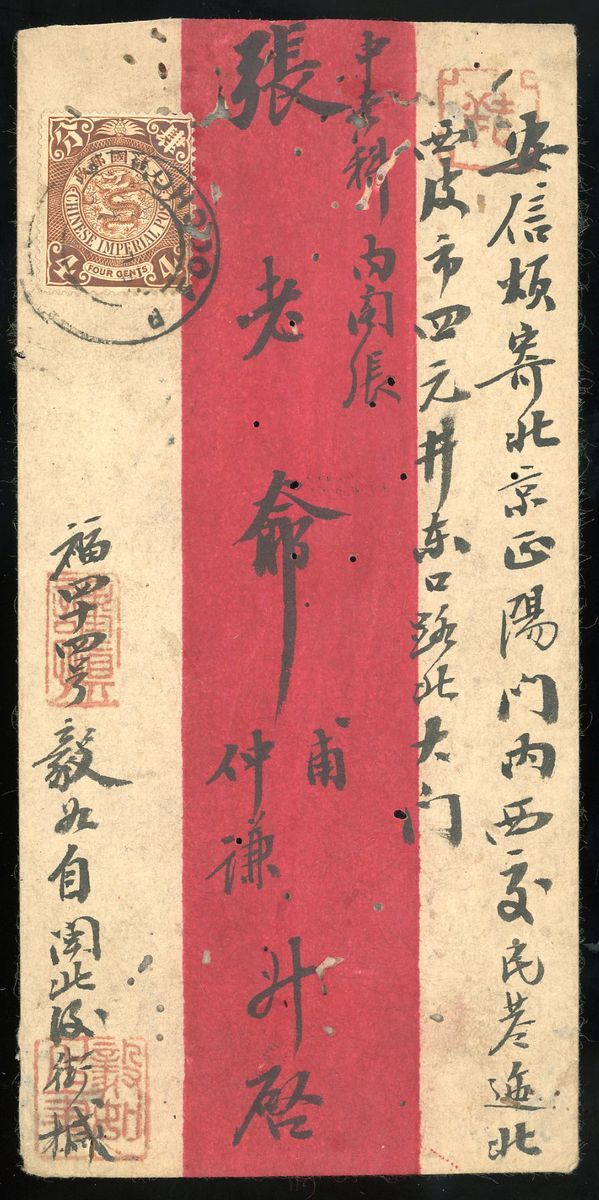 安信煩寄北京正陽門内西交民巷迤北
西皮市四元井东口路北大门
中書科内閣張
張老爺
甫
仲謙
升啓
福四十四号 毅如自閩北後街緘
大清國郵政
肆分
CHINESE IMPERIAL POST
FOUR CENTS
4
FOOCHOW
毅如